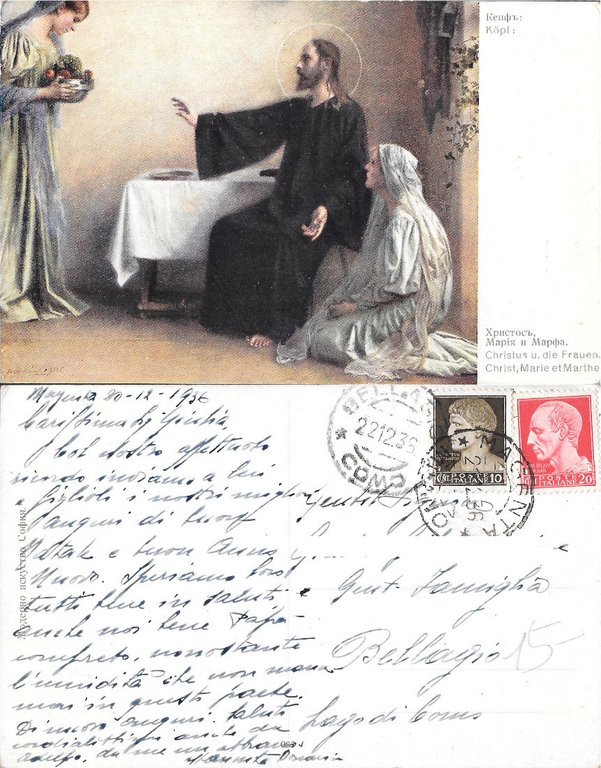 Кепфъ:
Köpf:
Христосъ,
Марія и Марфа.
Christus u. die Frauen.
Christ, Marie et Marthe
Magenta 20-12-1936
Carissima Sig Giulia
Col nostro affettuoso
ricordo inviamo a lei
e figlioli i nostri migliori
auguri di buon
Natale e buon Anno
Nuovo. Speriamo
tutti bene in salute e
anche noi bene Papà
compreso, nonostante
l'umidità che non manca
mai in questo paese.
Di nuovo auguri, saluti
cordialissimi anche da
da me un
Модерно искуство София.
BELLAGIO
22.12.36
* COMO
POSTE ITALIANE 10
POSTE ITALIANE 20
MAGENTA
Gent
e
Gent. Famiglia
Bellagio
15
Lago di Como